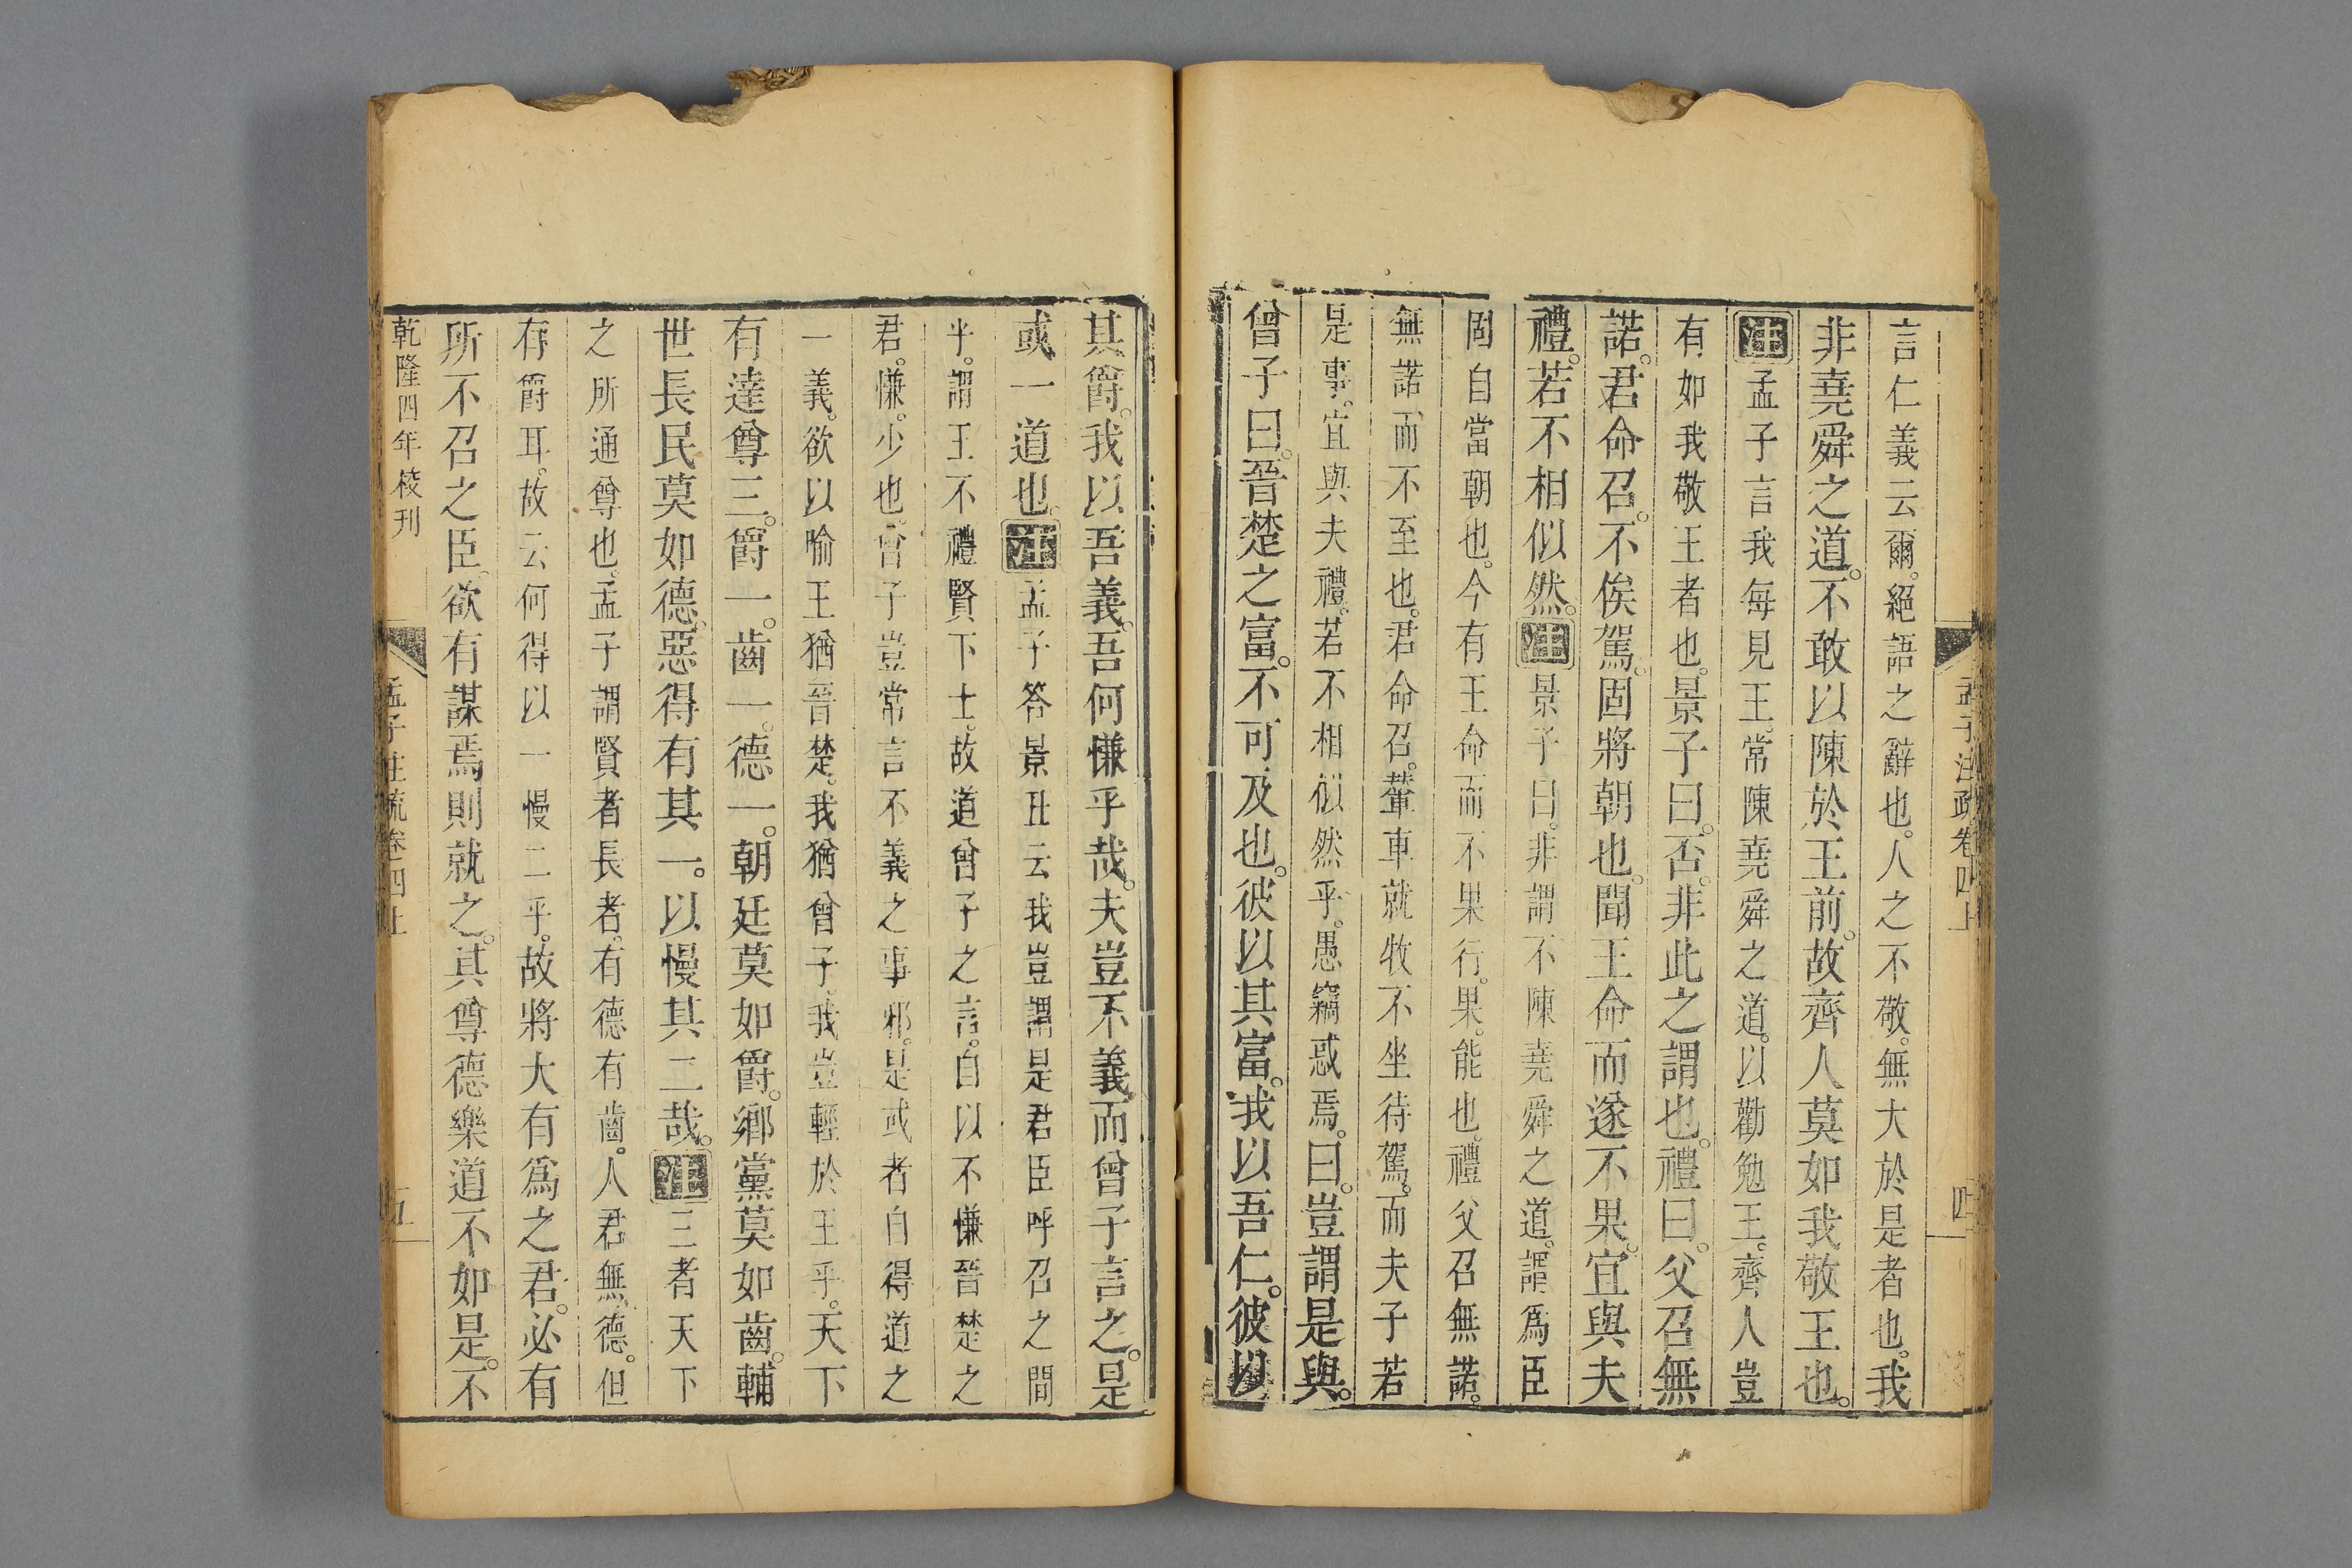 孟子注疏卷四上
四
言仁義云爾。絕語之辭也。人之不敬。無大於是者也。我
非堯舜之道。不敢以陳於王前。故齊人莫如我敬王也。
注孟子言我每見王。常陳堯舜之道。以勸勉王。齊人豈
有如我敬王者也。景子曰。否。非此之謂也。禮曰。父召無
諾。君命召。不俟駕。固將朝也。聞王命而遂不果。宜與夫
禮。若不相似然。注景子曰。非謂不陳堯舜之道。謂爲臣
固自當朝也。今有王命而不果行。果。能也。禮父召無諾。
無諾而不至也。君命召。輦車就牧不坐待駕。而夫子若
是事。宜與夫禮。若不相似然乎。愚竊惑焉。曰。豈謂是與。
曾子曰。晉楚之富。不可及也。彼以其富。我以吾仁。彼以
其爵。我以吾義。吾何慊乎哉。夫豈不義而曾子言之。是
或一道也。注孟子答景丑云我豈謂是君臣呼召之間
乎。謂王不禮賢下士。故道曾子之言。自以不慊晉楚之
君。慊。少也。曾子豈常言不義之事邪。是或者自得道之
一義。欲以喻王猶晉楚。我猶曾子。我豈輕於王乎。天下
有達尊三。爵一。齒一。德一。朝廷莫如爵。鄉黨莫如齒。輔
世長民莫如德。惡得有其一。以慢其二哉。注三者天下
之所通尊也。孟子謂賢者長者。有德有齒。人君無德。但
有爵耳。故云何得以一慢二乎。故將大有爲之君。必有
所不召之臣。欲有謀焉則就之。其尊德樂道不如是。不
乾隆四年校刊
孟子注疏卷四上
五